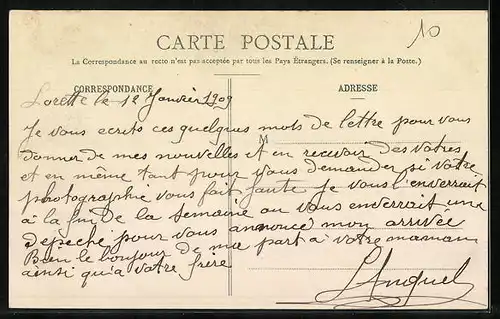 10
CARTE POSTALE
La Correspondance au recto n'est pas acceptée par tous les Pays Étrangers. (Se renseigner à la Poste.)
CORRESPONDANCE
ADRESSE
M
Lorette le 12 Janvier 1909
Je vous ecrits ces quelques mots de lettre pour vous
donner de mes nouvelles et en recevoir des votres
et en même tant pour vous demander si votre
photographie vous fait faute je vous l'enverrait
à la fin de la semaine ou vous enverrait une
depeche pour vous annoncé mon arrivée
Bien le bonjour de ma part à votre maman
ainsi qu'a votre frère